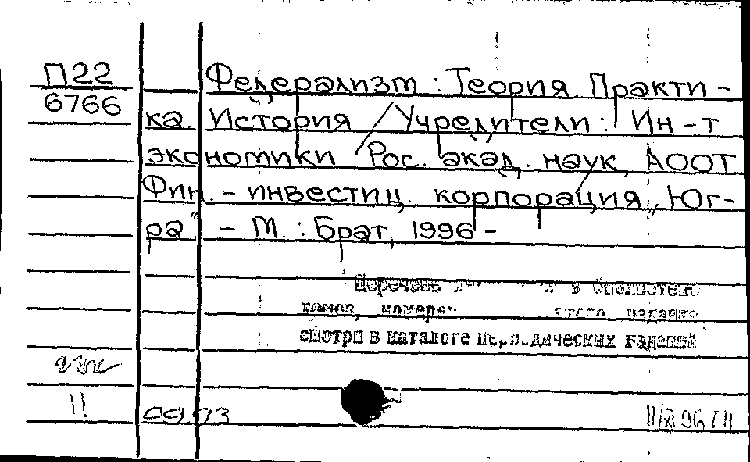 П22
6766
Федерализм : Теория. Практи-
ка. История / Учредители : Ин-т
экономики Рос. акад. наук, АООТ
Фин.-инвестиц. корпорация „Юг-
ра" - М. : Брат, 1996 -
Перечень в библиотеке
томов, номеров этого издания
смотри в каталоге периодических изданий
11